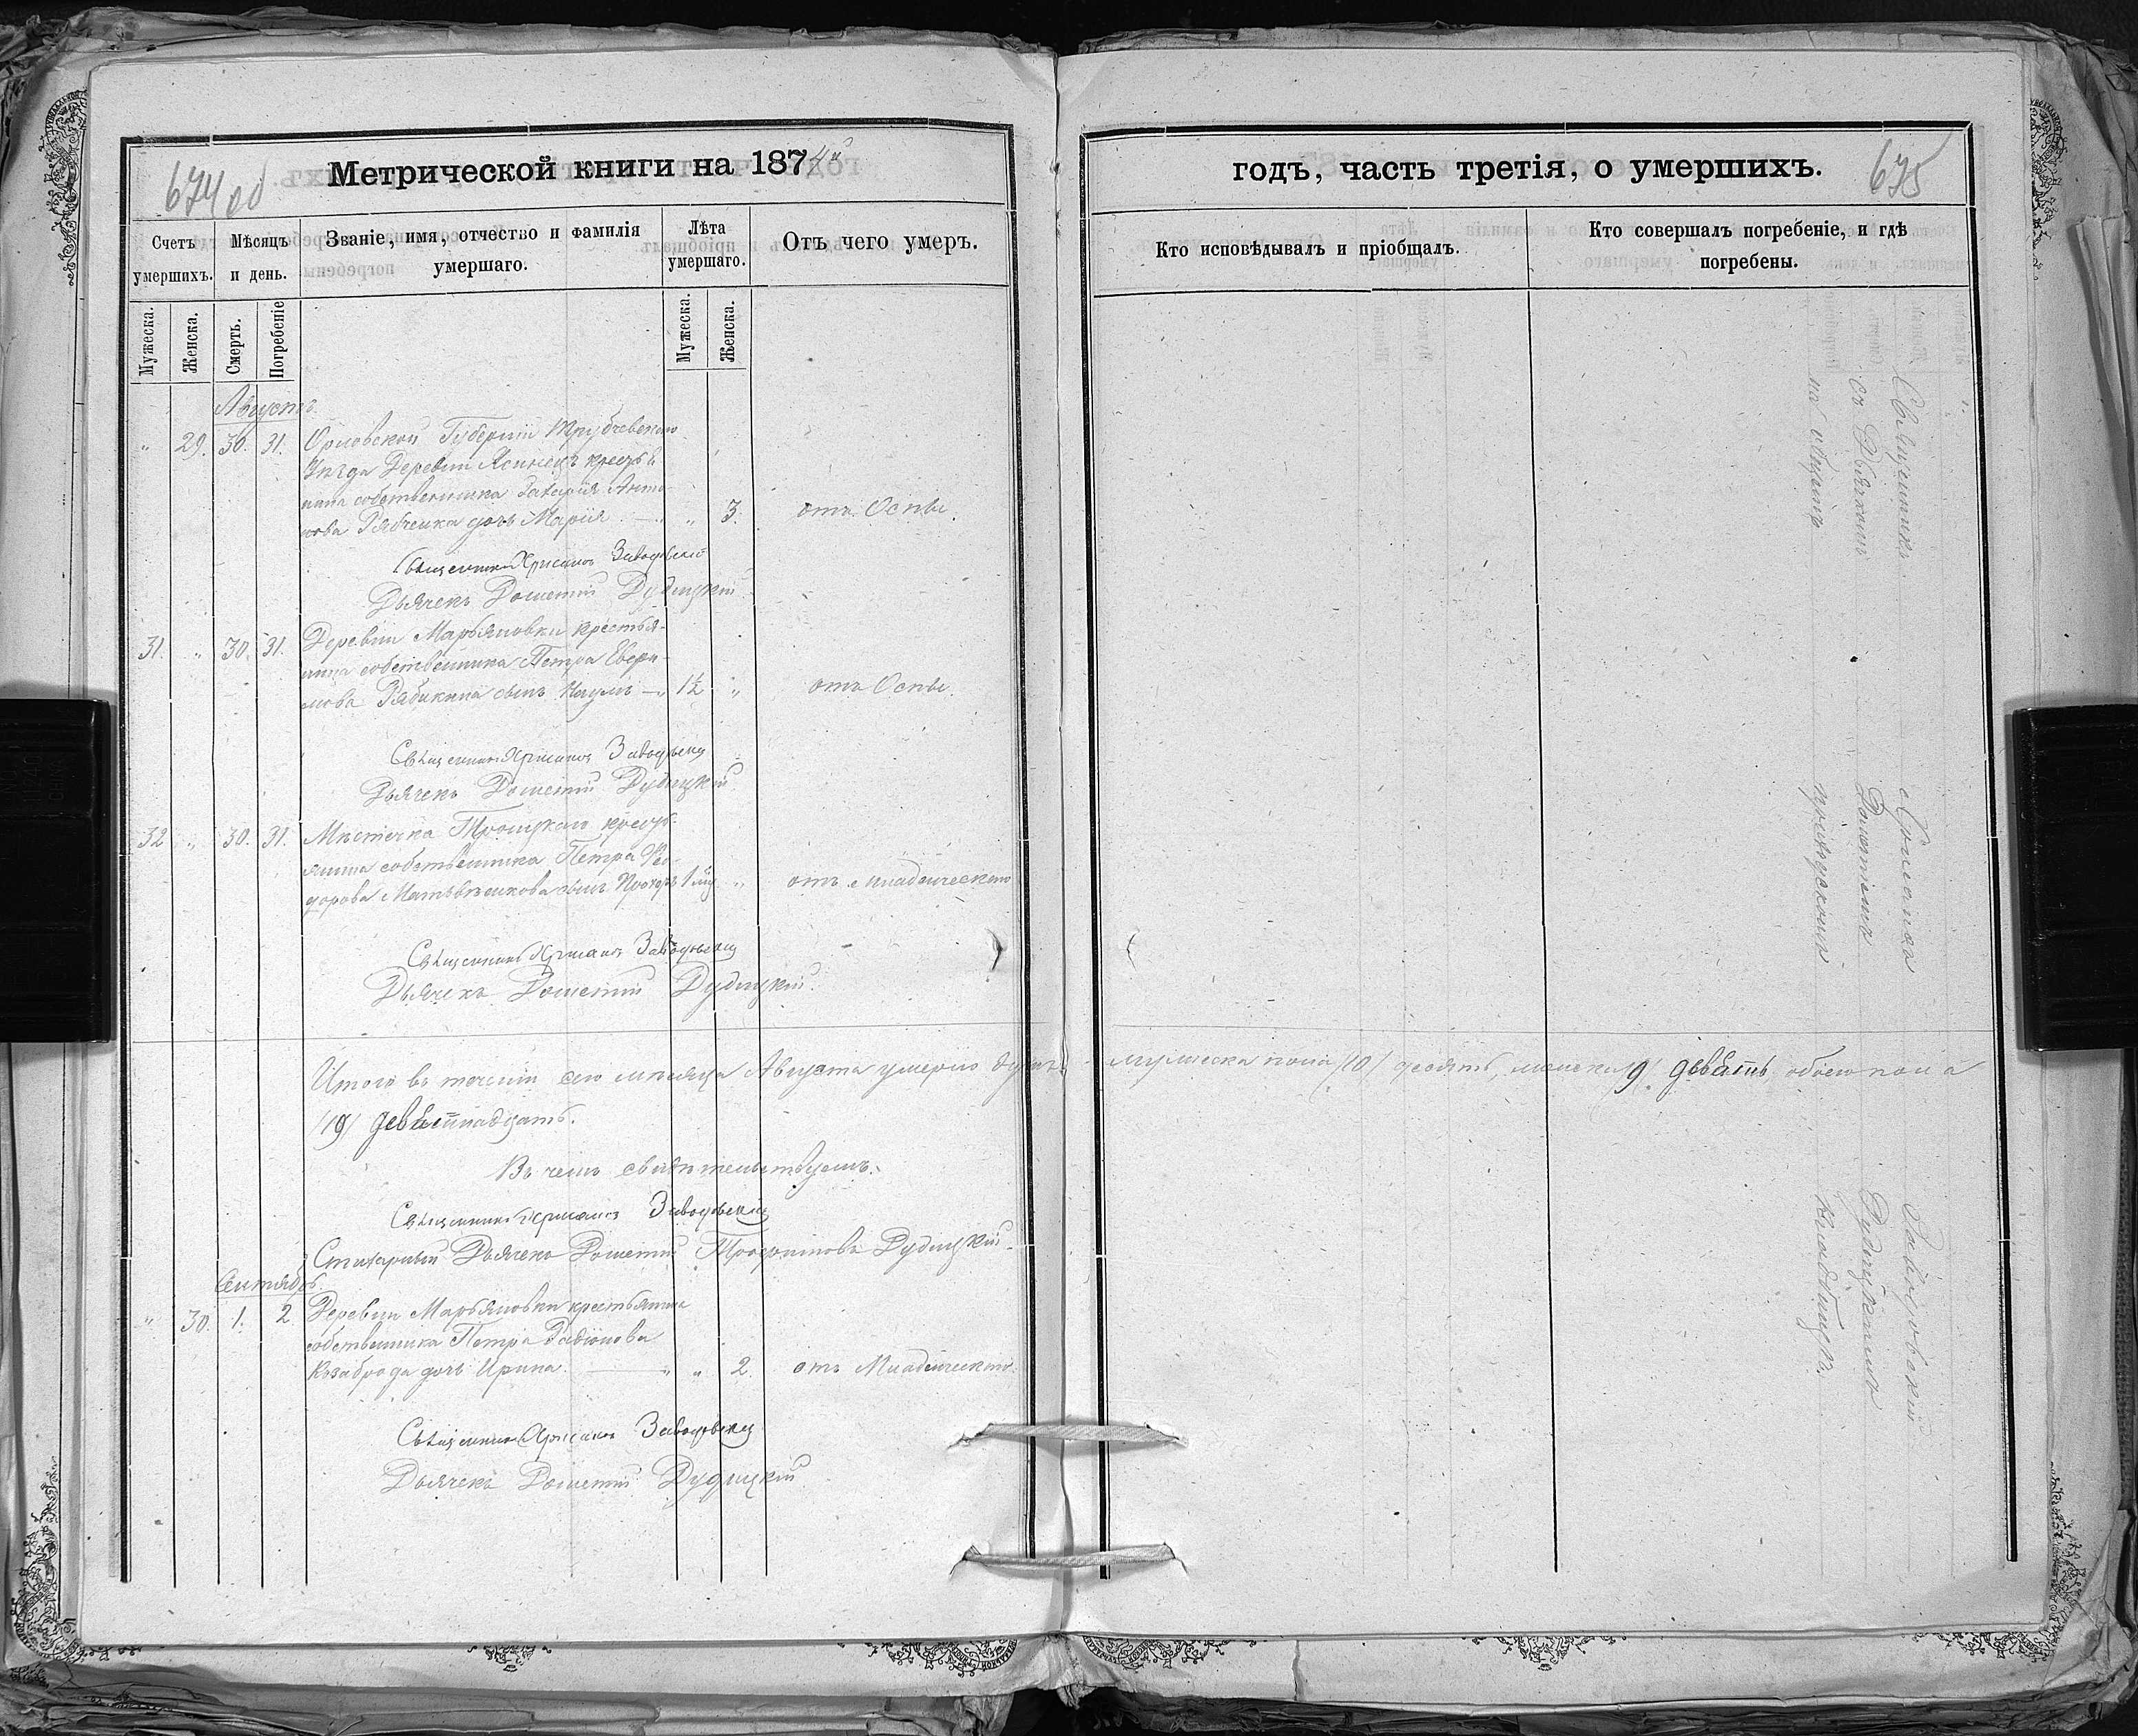 674 об
Метрической книги на 1874й
Счетъ умершихъ.
Мѣсяцъ и день.
Званіе, имя, отчество и фамилія умершаго.
Лѣта умершаго.
Отъ чего умеръ.
Мужеска.
Женска.
Смерть.
Погребеніе
Мужеска.
Женска.
Августъ.
" 29. 30. 31. Орловской Губерніи Трубчевскаго
Уѣзда Деревни Ясинецъ кресть
янина собственника Захарія Анто-
нова Рябченка дочь Марія — " " 3. отъ Оспы.
Священникъ Хрисанѳъ Заводовскій
Дьячекъ Дометій Дудицкій
31. " 30. 31. Деревни Марьяновки крестья-
нина собственника Петра
Рябикина сынъ Наумъ — " 1½ " отъ Оспы.
Священникъ Хрисанѳъ Заводовскій
Дьячекъ Дометій Дудицкій
32 " 30. 31. Мѣстечка Троицкаго кресть-
янина собственника Петра Ѳео-
дорова сынъ Прохоръ 1 " отъ младенческаго
Священникъ Хрисанѳъ Заводовскій
Дьячекъ Дометій Дудицкій.
Итого въ теченіи сего мѣсяца Августа умерло душъ
/19/ девятнадцать.
Въ чемъ свидѣтельствуемъ.
Священникъ Хрисанѳъ Заводовскій
Стихарный Дьячекъ Дометій Трофимовъ Дудицкій
Сентябрь.
" 30. 1. 2. Деревни Марьяновки крестьянина
собственника Петра Радіонова
дочь Ирина. — " " 2. отъ Младенческаго.
Священникъ Хрисанѳъ Заводовскій
Дьячекъ Дометій Дудицкій
годъ, часть третія, о умершихъ.
675
Кто исповѣдывалъ и пріобщалъ.
Кто совершалъ погребеніе, и гдѣ погребены.
Священникъ Хрисанѳъ Заводовскій
съ Дьячкомъ Дометіемъ Дудицкимъ
на общемъ приходскомъ кладбищѣ.
мужеска пола /10/ десять, женска /9/. девять, обоего пола